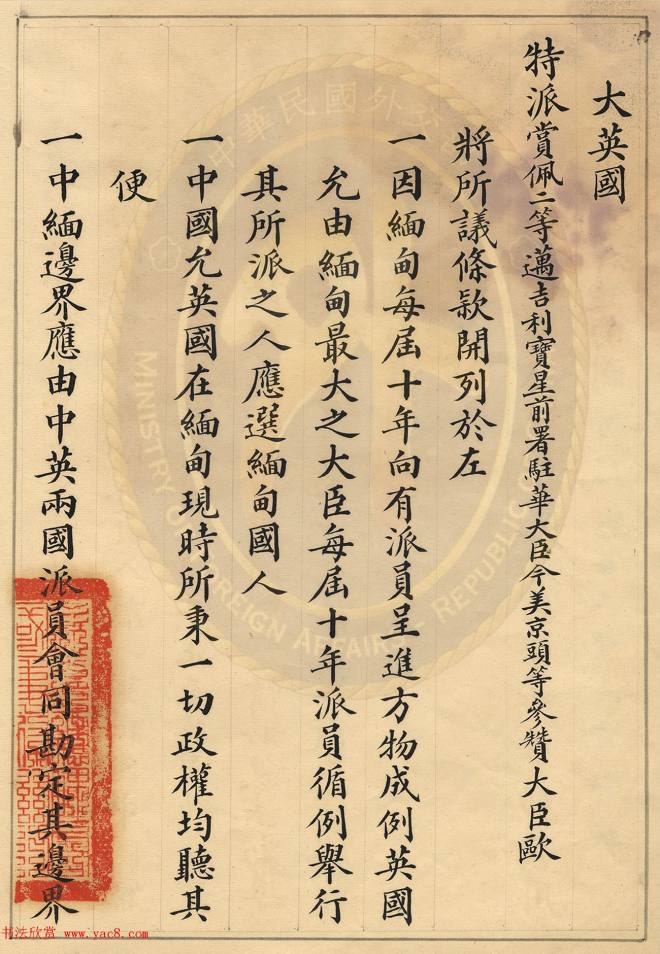 大英國
特派賞佩二等邁吉利寶星前署駐華大臣今美京頭等參贊大臣歐
將所議條款開列於左
一因緬甸每屆十年向有派員呈進方物成例英國
允由緬甸最大之大臣每屆十年派員循例舉行
其所派之人應選緬甸國人
一中國允英國在緬甸現時所秉一切政權均聽其
便
一中緬邊界應由中英兩國派員會同勘定其邊界
中華民國外交
MINISTRY OF FOREIGN AFFAIRS REPUBLIC
书法欣赏 www.yac8.com